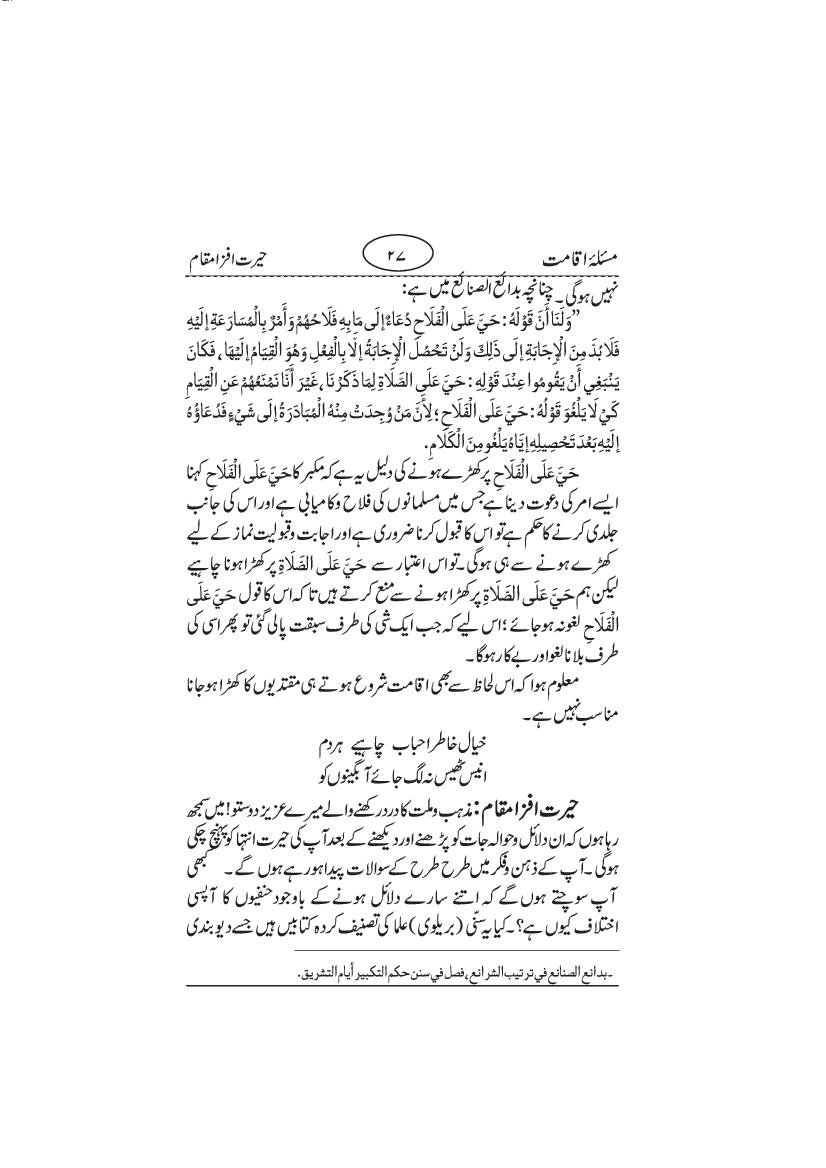 مسئلۂ اقامت ۲۷ حیرت افزا مقام
نہیں ہوگی۔ چنانچہ بدائع الصنائع میں ہے:
”وَلَنَا أَنَّ قَوْلَهُ: حَيَّ عَلَى الْفَلَاحِ دُعَاءٌ إلَى مَا بِهِ فَلَاحُهُمْ وَأَمْرٌ بِالْمُسَارَعَةِ إلَيْهِ
فَلَا بُدَّ مِنَ الْإِجَابَةِ إلَى ذَلِكَ وَلَنْ تَحْصُلَ الْإِجَابَةُ إلَّا بِالْفِعْلِ وَهُوَ الْقِيَامُ إلَيْهَا، فَكَانَ
يَنْبَغِي أَنْ يَقُومُوا عِنْدَ قَوْلِهِ: حَيَّ عَلَى الصَّلَاةِ لِمَا ذَكَرْنَا، غَيْرَ أَنَّا نَمْنَعُهُمْ عَنِ الْقِيَامِ
كَيْ لَا يَلْغُوَ قَوْلُهُ: حَيَّ عَلَى الْفَلَاحِ؛ لِأَنَّ مَنْ وُجِدَتْ مِنْهُ الْمُبَادَرَةُ إلَى شَيْءٍ فَدُعَاؤُهُ
إلَيْهِ بَعْدَ تَحْصِيلِهِ إيَّاهُ يَلْغُو مِنَ الْكَلَامِ.
حَيَّ عَلَى الْفَلَاحِ پر کھڑے ہونے کی دلیل یہ ہے کہ مکبر کا حَيَّ عَلَى الْفَلَاحِ کہنا
ایسے امر کی دعوت دینا ہے جس میں مسلمانوں کی فلاح و کامیابی ہے اور اس کی جانب
جلدی کرنے کا حکم ہے تو اس کا قبول کرنا ضروری ہے اور اجابت و قبولیت نماز کے لیے
کھڑے ہونے سے ہی ہوگی۔ تو اس اعتبار سے حَيَّ عَلَى الصَّلَاةِ پر کھڑا ہونا چاہیے
لیکن ہم حَيَّ عَلَى الصَّلَاةِ پر کھڑا ہونے سے منع کرتے ہیں تا کہ اس کا قول حَيَّ عَلَى
الْفَلَاحِ لغو نہ ہو جائے؛ اس لیے کہ جب ایک شی کی طرف سبقت پالی گئی تو پھر اسی کی
طرف بلانا لغو اور بے کار ہوگا۔
معلوم ہوا کہ اس لحاظ سے بھی اقامت شروع ہوتے ہی مقتدیوں کا کھڑا ہو جانا
مناسب نہیں ہے۔
خیال خاطر احباب چاہیے ہر دم
انیس ٹھیس نہ لگ جائے آبگینوں کو
حیرت افزا مقام: مذہب و ملت کا درد رکھنے والے میرے عزیز دوستو! میں سمجھ
رہا ہوں کہ ان دلائل و حوالہ جات کو پڑھنے اور دیکھنے کے بعد آپ کی حیرت انتہا کو پہنچ چکی
ہوگی۔ آپ کے ذہن و فکر میں طرح طرح کے سوالات پیدا ہو رہے ہوں گے۔ کبھی
آپ سوچتے ہوں گے کہ اتنے سارے دلائل ہونے کے باوجود حنفیوں کا آپسی
اختلاف کیوں ہے؟۔ کیا یہ سنّی (بریلوی) علما کی تصنیف کردہ کتابیں ہیں جسے دیوبندی
۔بدائع الصنائع في ترتيب الشرائع، فصل في سنن حكم التكبير أيام التشريق.